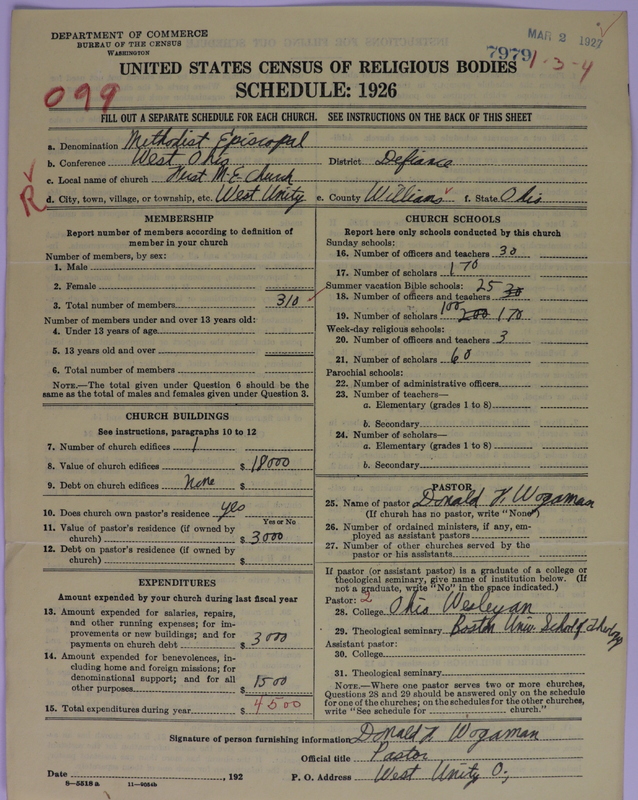 DEPARTMENT OF COMMERCE
BUREAU OF THE CENSUS
WASHINGTON
MAR 2 1927
7979 1-3-4
UNITED STATES CENSUS OF RELIGIOUS BODIES
SCHEDULE: 1926
099
FILL OUT A SEPARATE SCHEDULE FOR EACH CHURCH. SEE INSTRUCTIONS ON THE BACK OF THIS SHEET
a. Denomination Methodist Episcopal
b. Conference West Ohio District Defiance
c. Local name of church First M.E. Church
R
d. City, town, village, or township, etc. West Unity e. County Williams f. State Ohio
MEMBERSHIP
Report number of members according to definition of
member in your church
Number of members, by sex:
1. Male
2. Female
3. Total number of members 310
Number of members under and over 13 years old:
4. Under 13 years of age
5. 13 years old and over
6. Total number of members
NOTE.—The total given under Question 6 should be the
same as the total of males and females given under Question 3.
CHURCH BUILDINGS
See instructions, paragraphs 10 to 12
7. Number of church edifices 1
8. Value of church edifices $ 18000
9. Debt on church edifices None $
10. Does church own pastor's residence yes
Yes or No
11. Value of pastor's residence (if owned by
church) $ 3000
12. Debt on pastor's residence (if owned by
church) $
EXPENDITURES
Amount expended by your church during last fiscal year
13. Amount expended for salaries, repairs,
and other running expenses; for im-
provements or new buildings; and for
payments on church debt $ 3000
14. Amount expended for benevolences, in-
cluding home and foreign missions; for
denominational support; and for all
other purposes $ 1500
15. Total expenditures during year $ 4500
CHURCH SCHOOLS
Report here only schools conducted by this church
Sunday schools:
16. Number of officers and teachers 30
17. Number of scholars 170
Summer vacation Bible schools:
18. Number of officers and teachers 25 30
19. Number of scholars 100 200 170
Week-day religious schools:
20. Number of officers and teachers 3
21. Number of scholars 60
Parochial schools:
22. Number of administrative officers
23. Number of teachers—
a. Elementary (grades 1 to 8)
b. Secondary
24. Number of scholars—
a. Elementary (grades 1 to 8)
b. Secondary
PASTOR
25. Name of pastor Donald H. Wogaman
(If church has no pastor, write "None")
26. Number of ordained ministers, if any, em-
ployed as assistant pastors
27. Number of other churches served by the
pastor or his assistants
If pastor (or assistant pastor) is a graduate of a college or
theological seminary, give name of institution below. (If
not a graduate, write "No" in the space indicated.)
Pastor: 2
28. College Ohio Wesleyan
29. Theological seminary Boston Univ. School of Theology
Assistant pastor:
30. College
31. Theological seminary
NOTE.—Where one pastor serves two or more churches,
Questions 28 and 29 should be answered only on the schedule
for one of the churches; on the schedules for the other churches,
write "See schedule for church."
Signature of person furnishing information Donald H. Wogaman
Official title Pastor
Date , 192 P. O. Address West Unity O.,
8—5518a 11—9054b